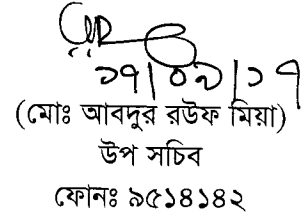 ১৭|০৯|১৭
(মোঃ আবদুর রউফ মিয়া)
উপ সচিব
ফোনঃ ৯৫১৪১৪২